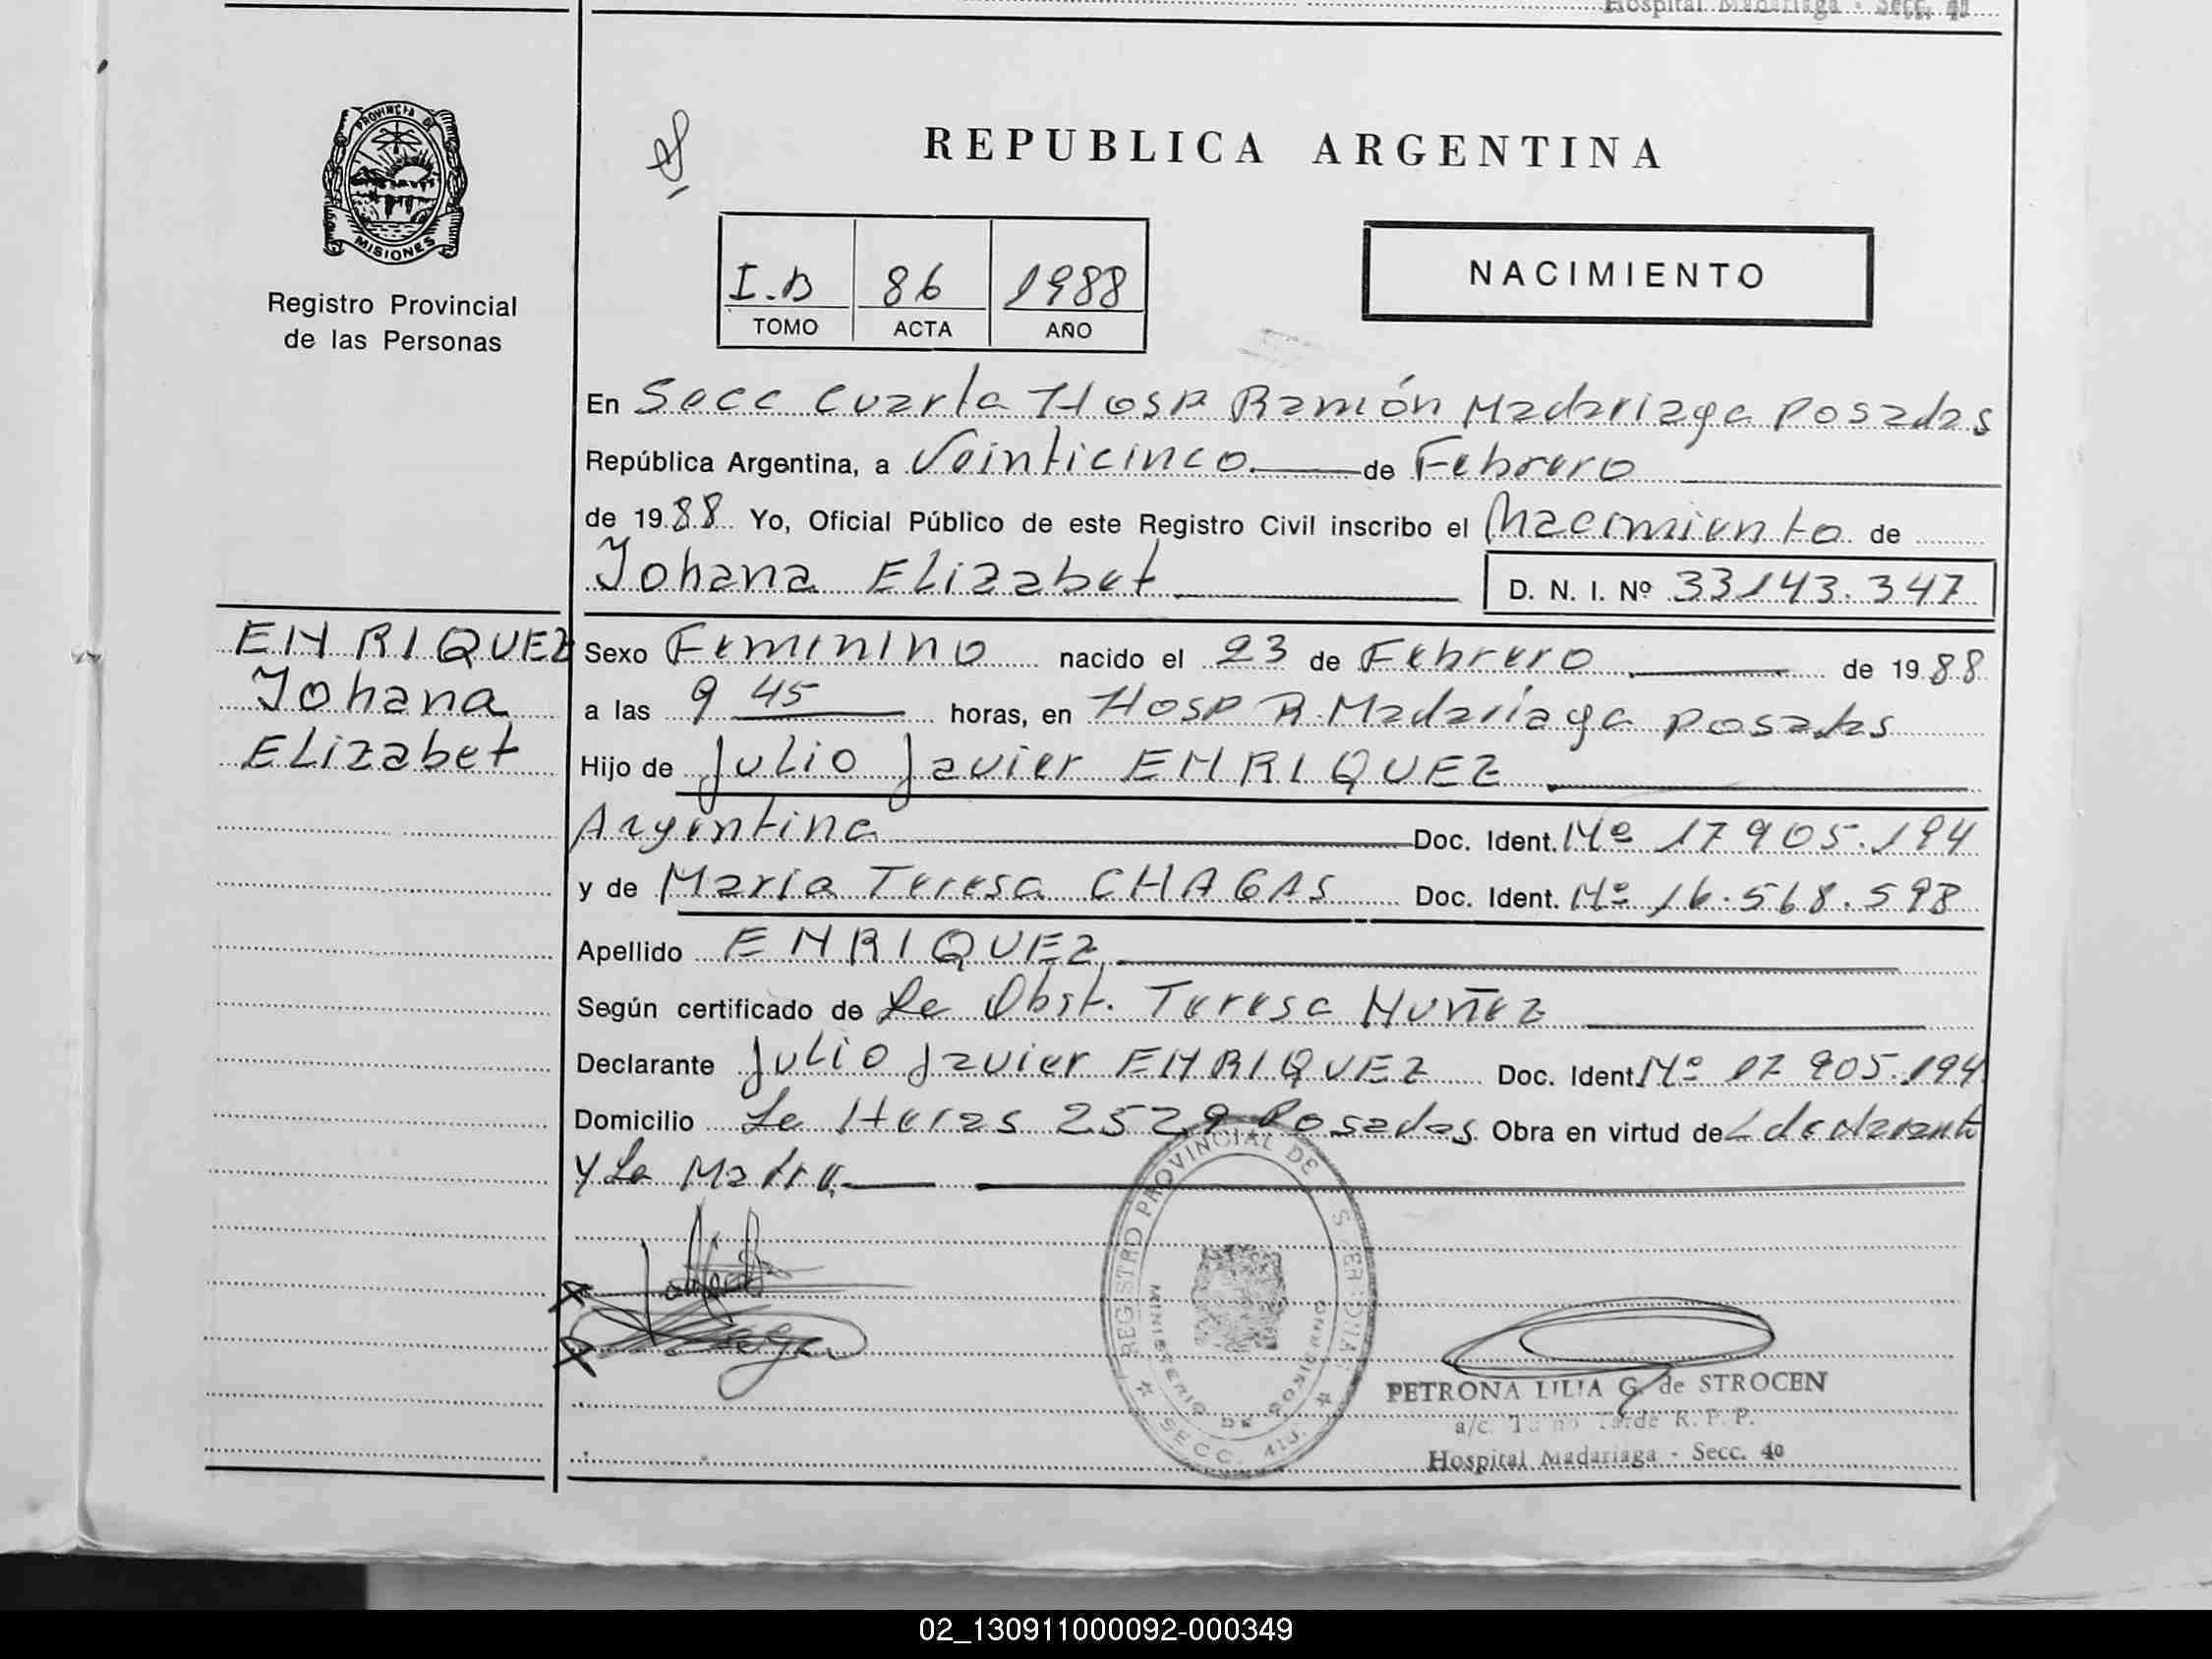 Hospital Madariaga - Secc. 4º
PROVINCIA DE
MISIONES
Registro Provincial
de las Personas
REPUBLICA ARGENTINA
I.B 86 1988
TOMO ACTA AÑO
NACIMIENTO
En Secc Cuarta Hosp Ramón Madariaga Posadas
República Argentina, a Veinticinco de Febrero
de 1988 Yo, Oficial Público de este Registro Civil inscribo el Nacimiento de
Johana Elizabet
D. N. I. Nº 33143.347
ENRIQUEZ
Johana
Elizabet
Sexo Feminino nacido el 23 de Febrero de 1988
a las 9 45 horas, en Hosp R. Madariaga Posadas
Hijo de Julio Javier ENRIQUEZ
Argentina Doc. Ident. Nº 17905.194
y de María Teresa CHAGAS Doc. Ident. Nº 16.568.598
Apellido ENRIQUEZ
Según certificado de La Obst. Teresa Nuñez
Declarante Julio Javier ENRIQUEZ Doc. Ident. Nº 17 905.194
Domicilio La Heras 2529 Posadas Obra en virtud de L declarante
y La Madre
REGISTRO PROVINCIAL DE
MINISTERIO DE GOBIERNO
SECC. 4ta.
PETRONA LILIA G. de STROCEN
a/c. Turno Tarde R. P. P.
Hospital Madariaga - Secc. 4º
02_130911000092-000349